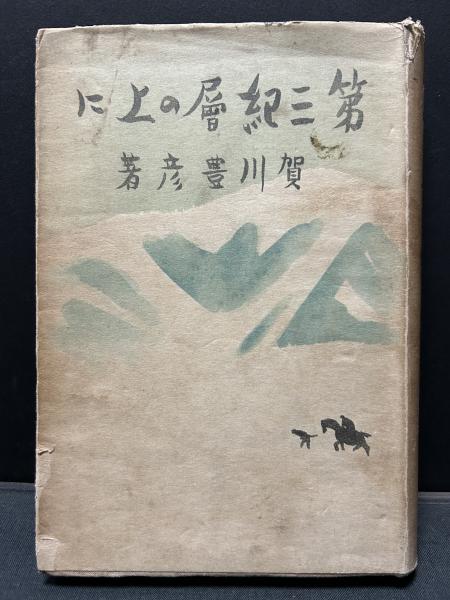 第三紀層の上に
賀川豊彦著